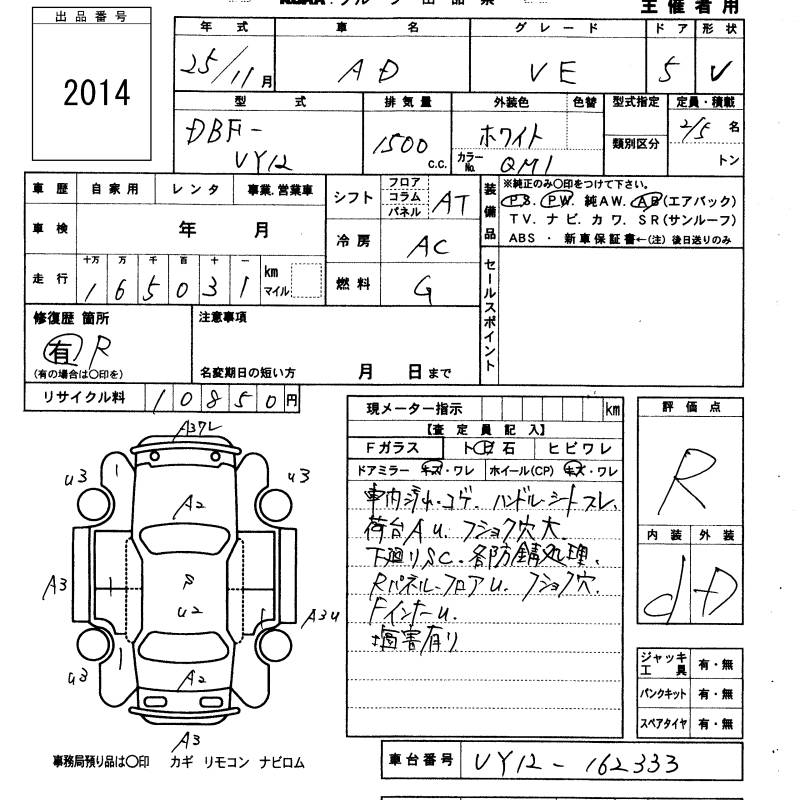 主催者用
出品番号
2014
年式 車名 グレード ドア 形状
25/11月 AD VE 5 V
型式 排気量 外装色 色替 型式指定 定員・積載
DBF-VY12 1500c.c. ホワイト 2/5名
カラーNo. QM1 類別区分 トン
車歴 自家用 レンタ 事業.営業車
シフト フロア コラム パネル AT
装備品 ※純正のみ○印をつけて下さい。
PS. PW. 純AW. AB(エアバック)
TV. ナビ. カワ. SR(サンルーフ)
ABS ・ 新車保証書←(注) 後日送りのみ
車検 年 月
冷房 AC
走行 十万 万 千 百 十 一
165031 km マイル
燃料 G
セールスポイント
修復歴 箇所
有 R
(有の場合は○印を)
注意事項
名変期日の短い方 月 日まで
リサイクル料 10850円
現メーター指示 km
【査定員記入】
Fガラス ト 石 ヒビワレ
ドアミラー キズ・ワレ ホイール(CP) キズ・ワレ
車内汚れ・コゲ. ハンドル・シートスレ.
荷台AU. フショク穴大.
下廻りSC. 各防錆処理.
Rパネル・フロアU. フショク穴.
FインナーU.
塩害有り
評価点
R
内装 外装
d D
ジャッキ 工具 有・無
パンクキット 有・無
スペアタイヤ 有・無
A3
U3 1 U3
A2
A3 S U2 A3U
U3 1 A2
A3
事務局預り品は○印 カギ リモコン ナビロム
車台番号 VY12-162333